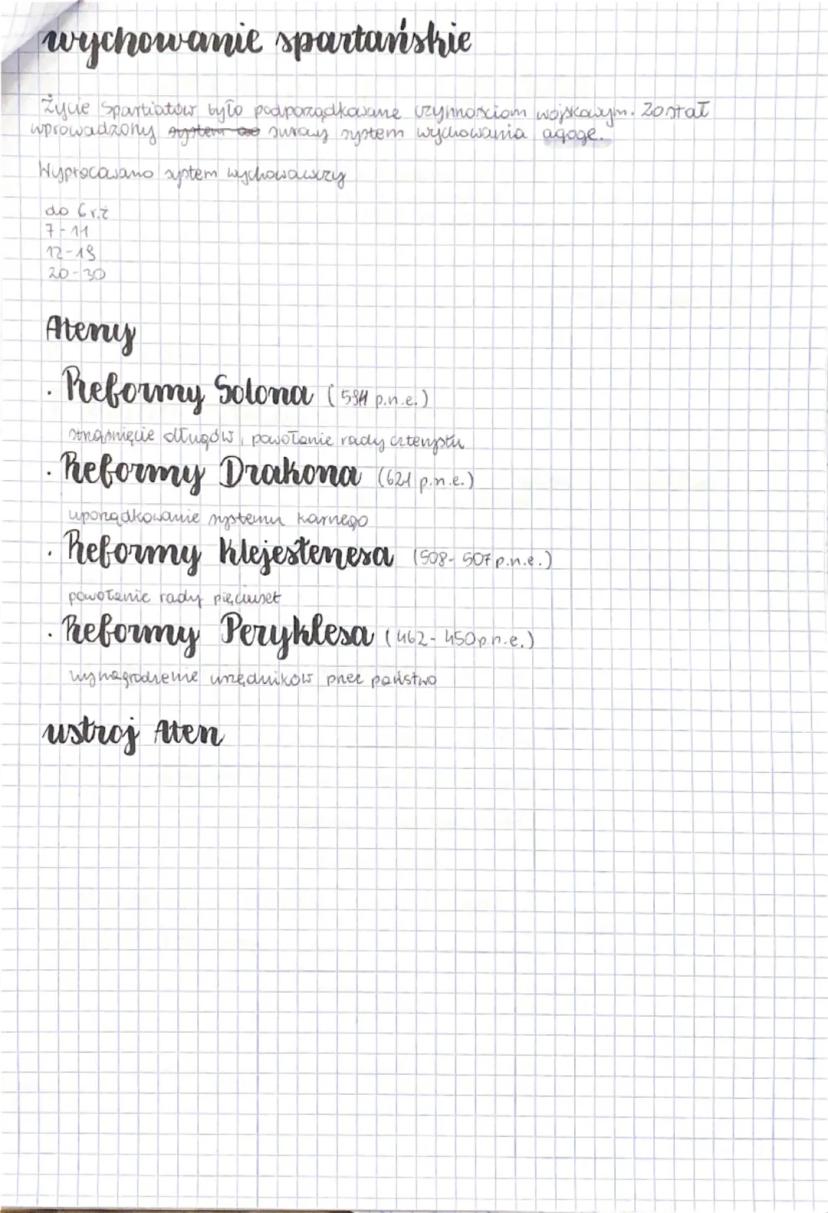 wychowanie spartańskie
Życie Spartiatów było podporządkowane czynnościom wojskowym. Został
wprowadzony system surowy system wychowania agoge.
Wypracowano system wychowawczy
do 6 r.ż
7-11
12-19
20-30
Ateny
· Reformy Solona (594 p.n.e.)
długów, powołanie rady czterystu
· Reformy Drakona (621 p.n.e.)
uporządkowanie systemu karnego
· Reformy Klejestenesa (508-507 p.n.e.)
powołanie rady pięciuset
· Reformy Peryklesa (462-450 p.n.e.)
wynagrodzenie urzędników przez państwo
ustroj Aten